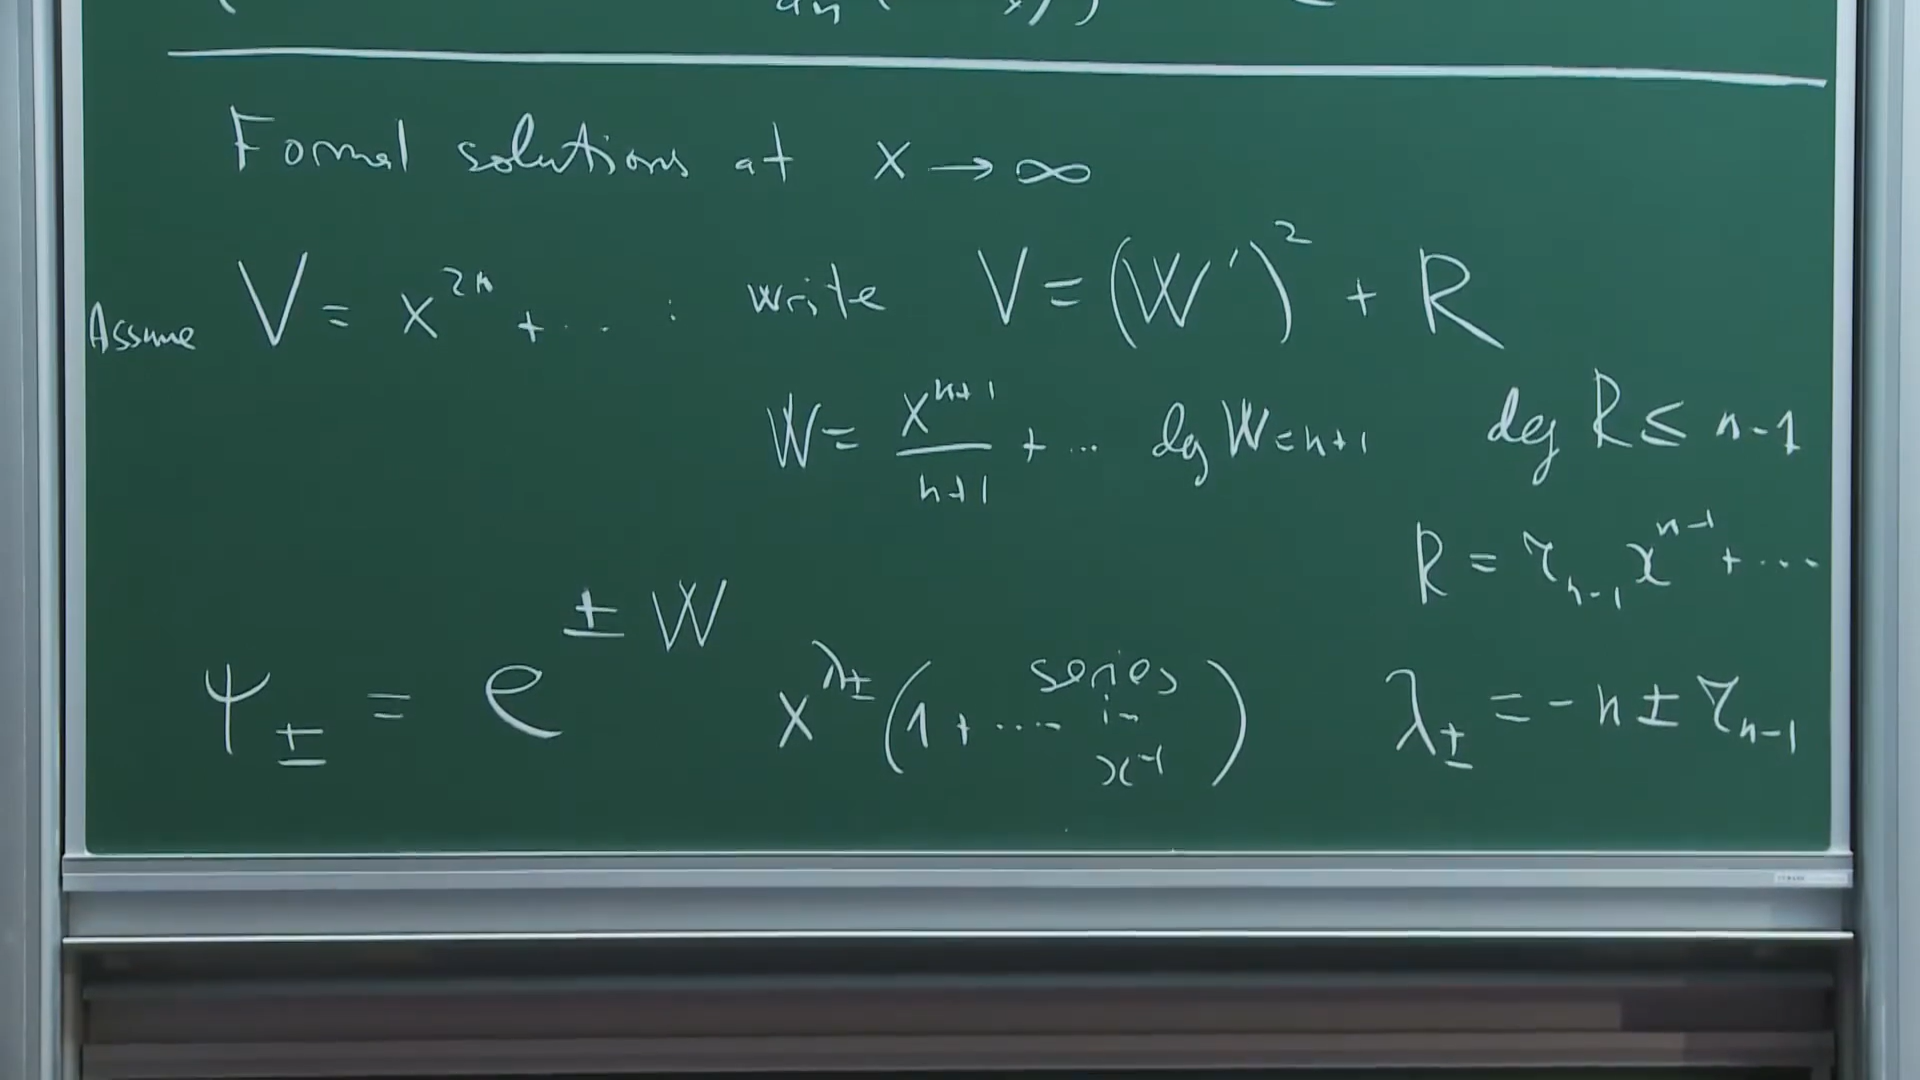 Formal solutions at x → ∞
Assume V = x^{2n} + ... : write V = (W')^2 + R
W = \frac{x^{n+1}}{n+1} + ... dg W = n+1 deg R ≤ n-1
R = r_{n-1} x^{n-1} + ...
ψ_± = e^{±W} x^{λ_±} (1 + .... series in x^{-1}) λ_± = -n ± r_{n-1}